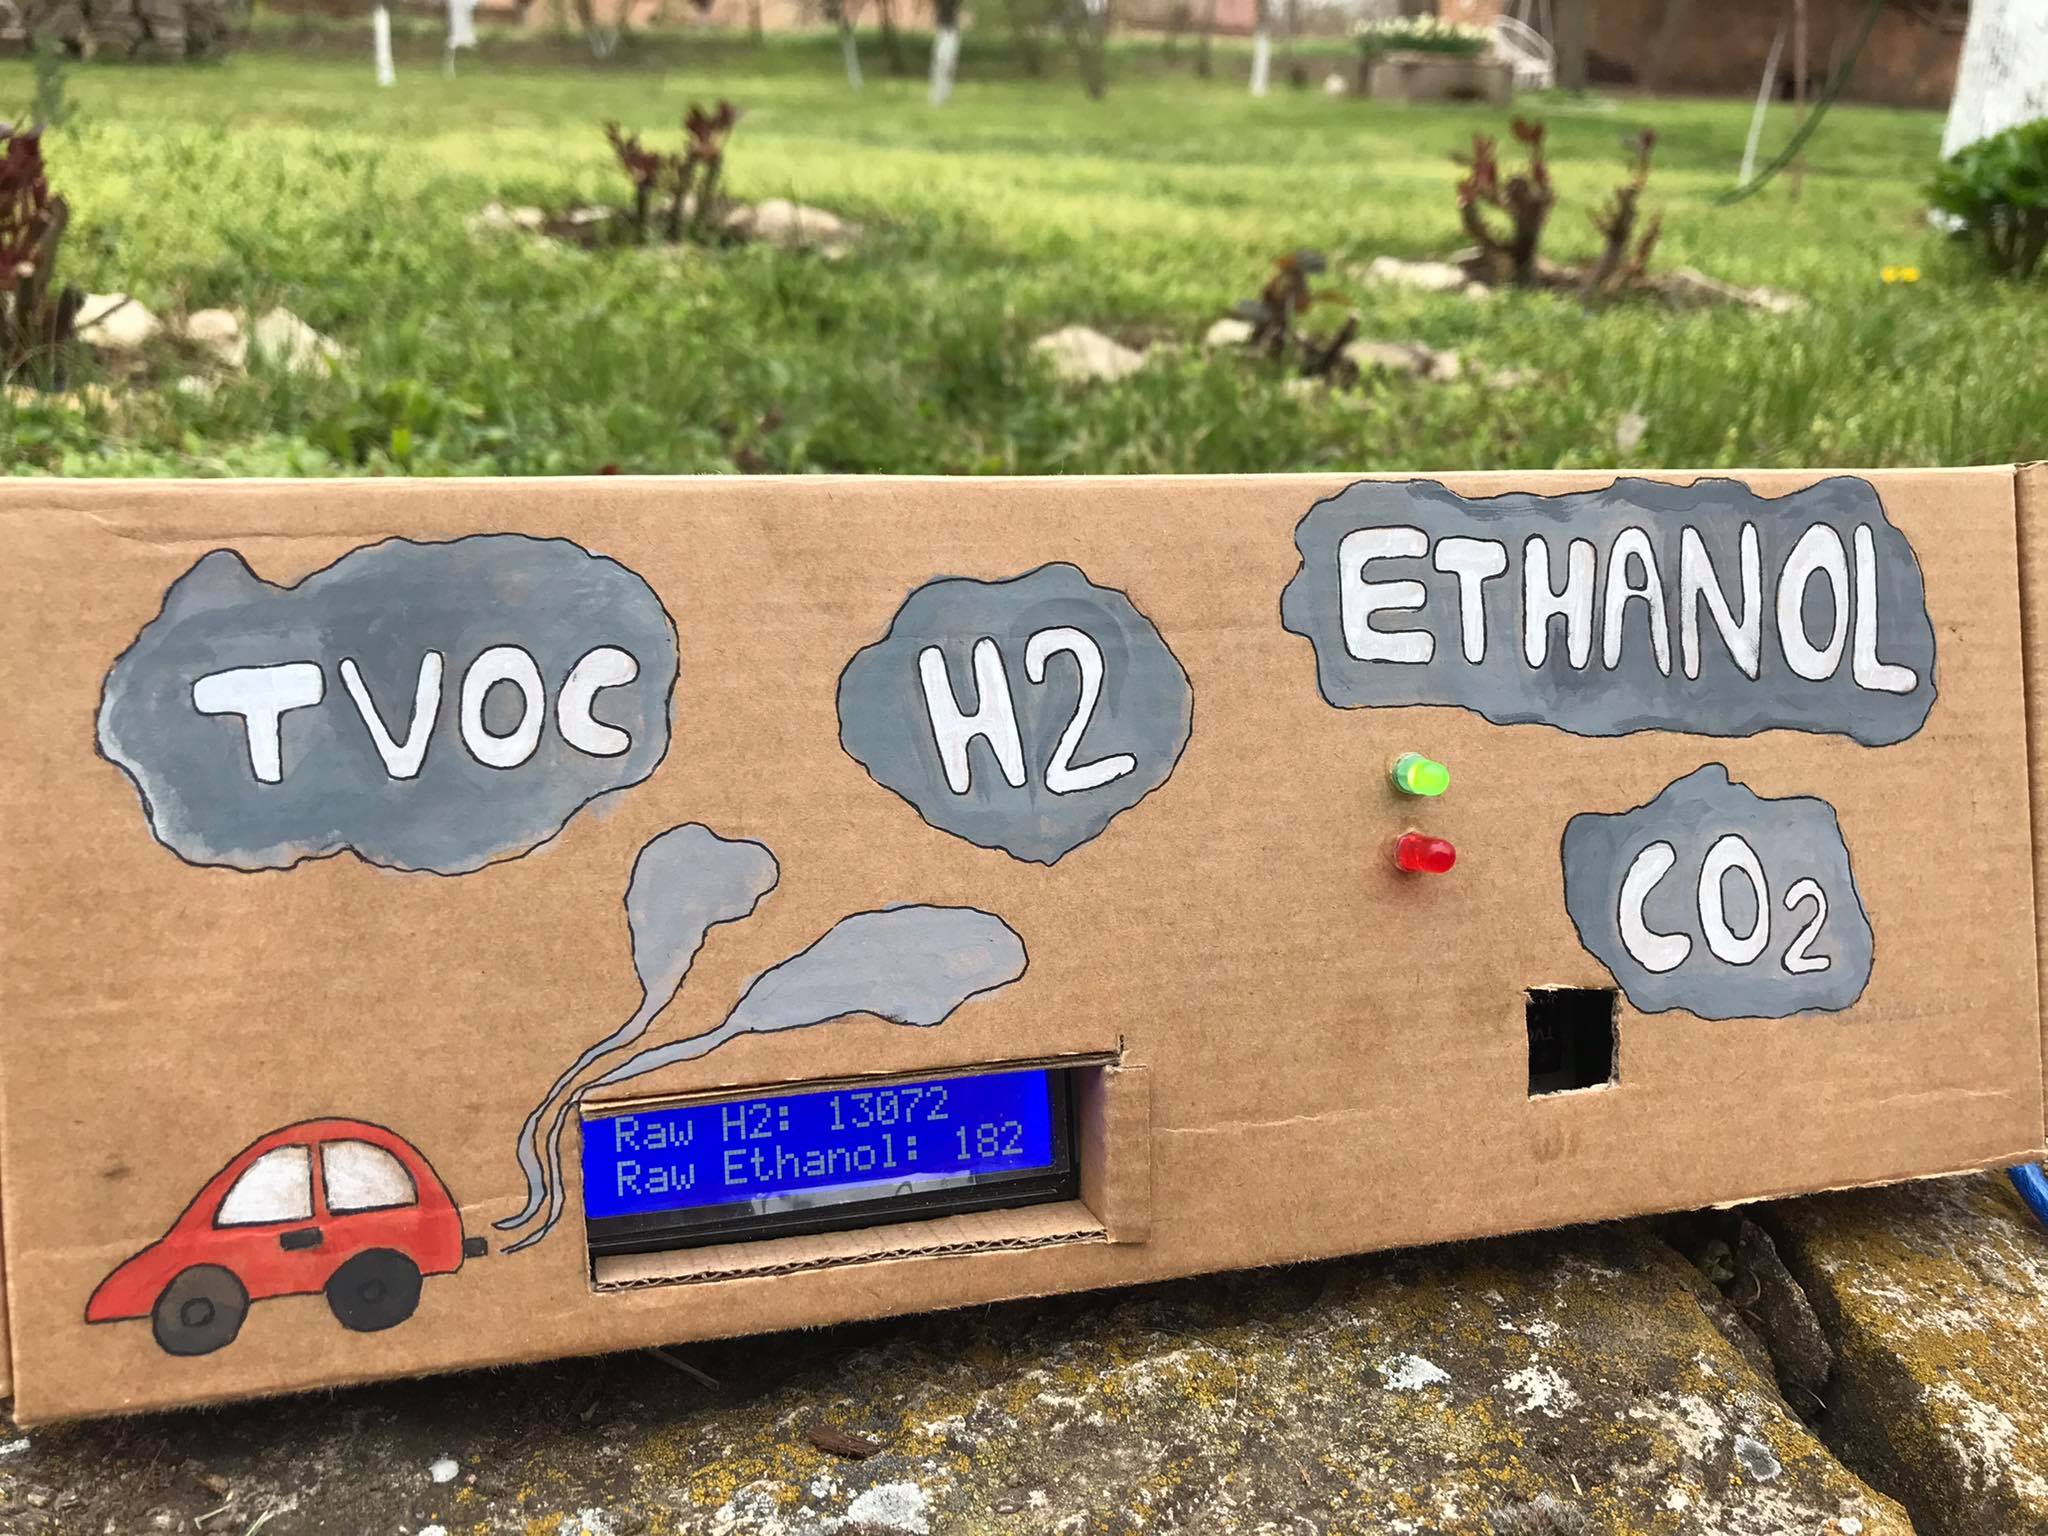 TVOC
H2
ETHANOL
CO2
Raw H2: 13072
Raw Ethanol: 182